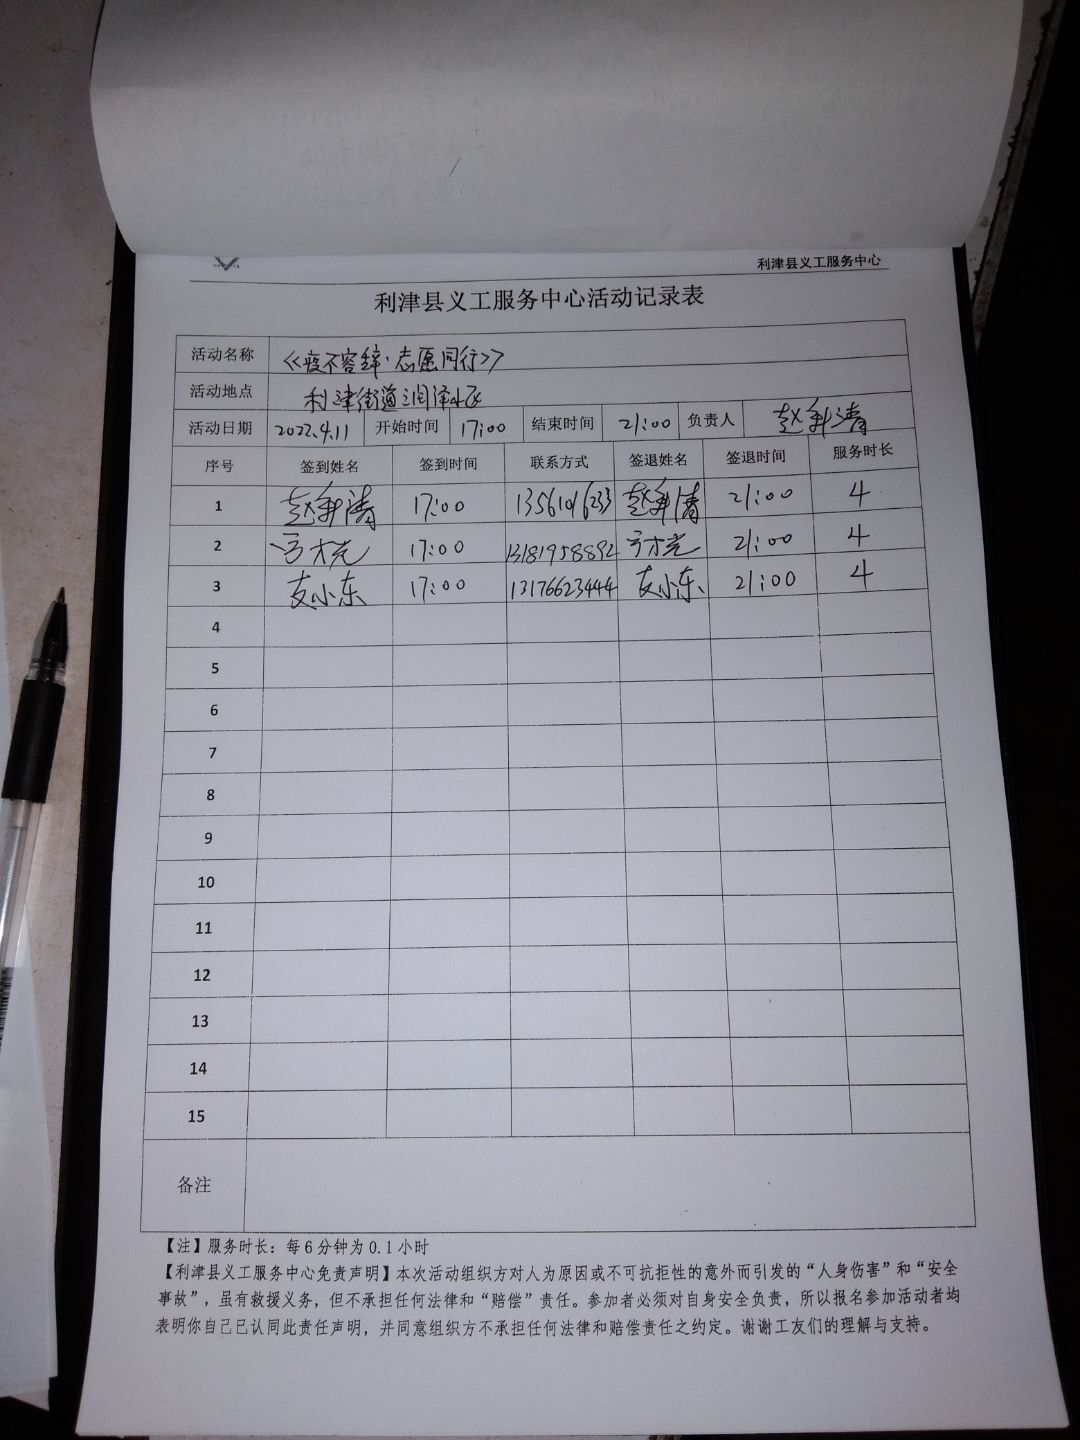 利津县义工服务中心
利津县义工服务中心活动记录表
活动名称 《疫不容辞·志愿同行》
活动地点 利津街道润泽小区
活动日期 2022.4.11 开始时间 17:00 结束时间 21:00 负责人 赵
序号 签到姓名 签到时间 联系方式 签退姓名 签退时间 服务时长
1 赵 17:00 赵 21:00 4
2 17:00 13181958892 21:00 4
3 友小东 17:00 13176623444 友小东 21:00 4
4
5
6
7
8
9
10
11
12
13
14
15
备注
【注】服务时长：每6分钟为0.1小时
【利津县义工服务中心免责声明】本次活动组织方对人为原因或不可抗拒性的意外而引发的“人身伤害”和“安全
事故”，虽有救援义务，但不承担任何法律和“赔偿”责任。参加者必须对自身安全负责，所以报名参加活动者均
表明你自己已认同此责任声明，并同意组织方不承担任何法律和赔偿责任之约定。谢谢工友们的理解与支持。